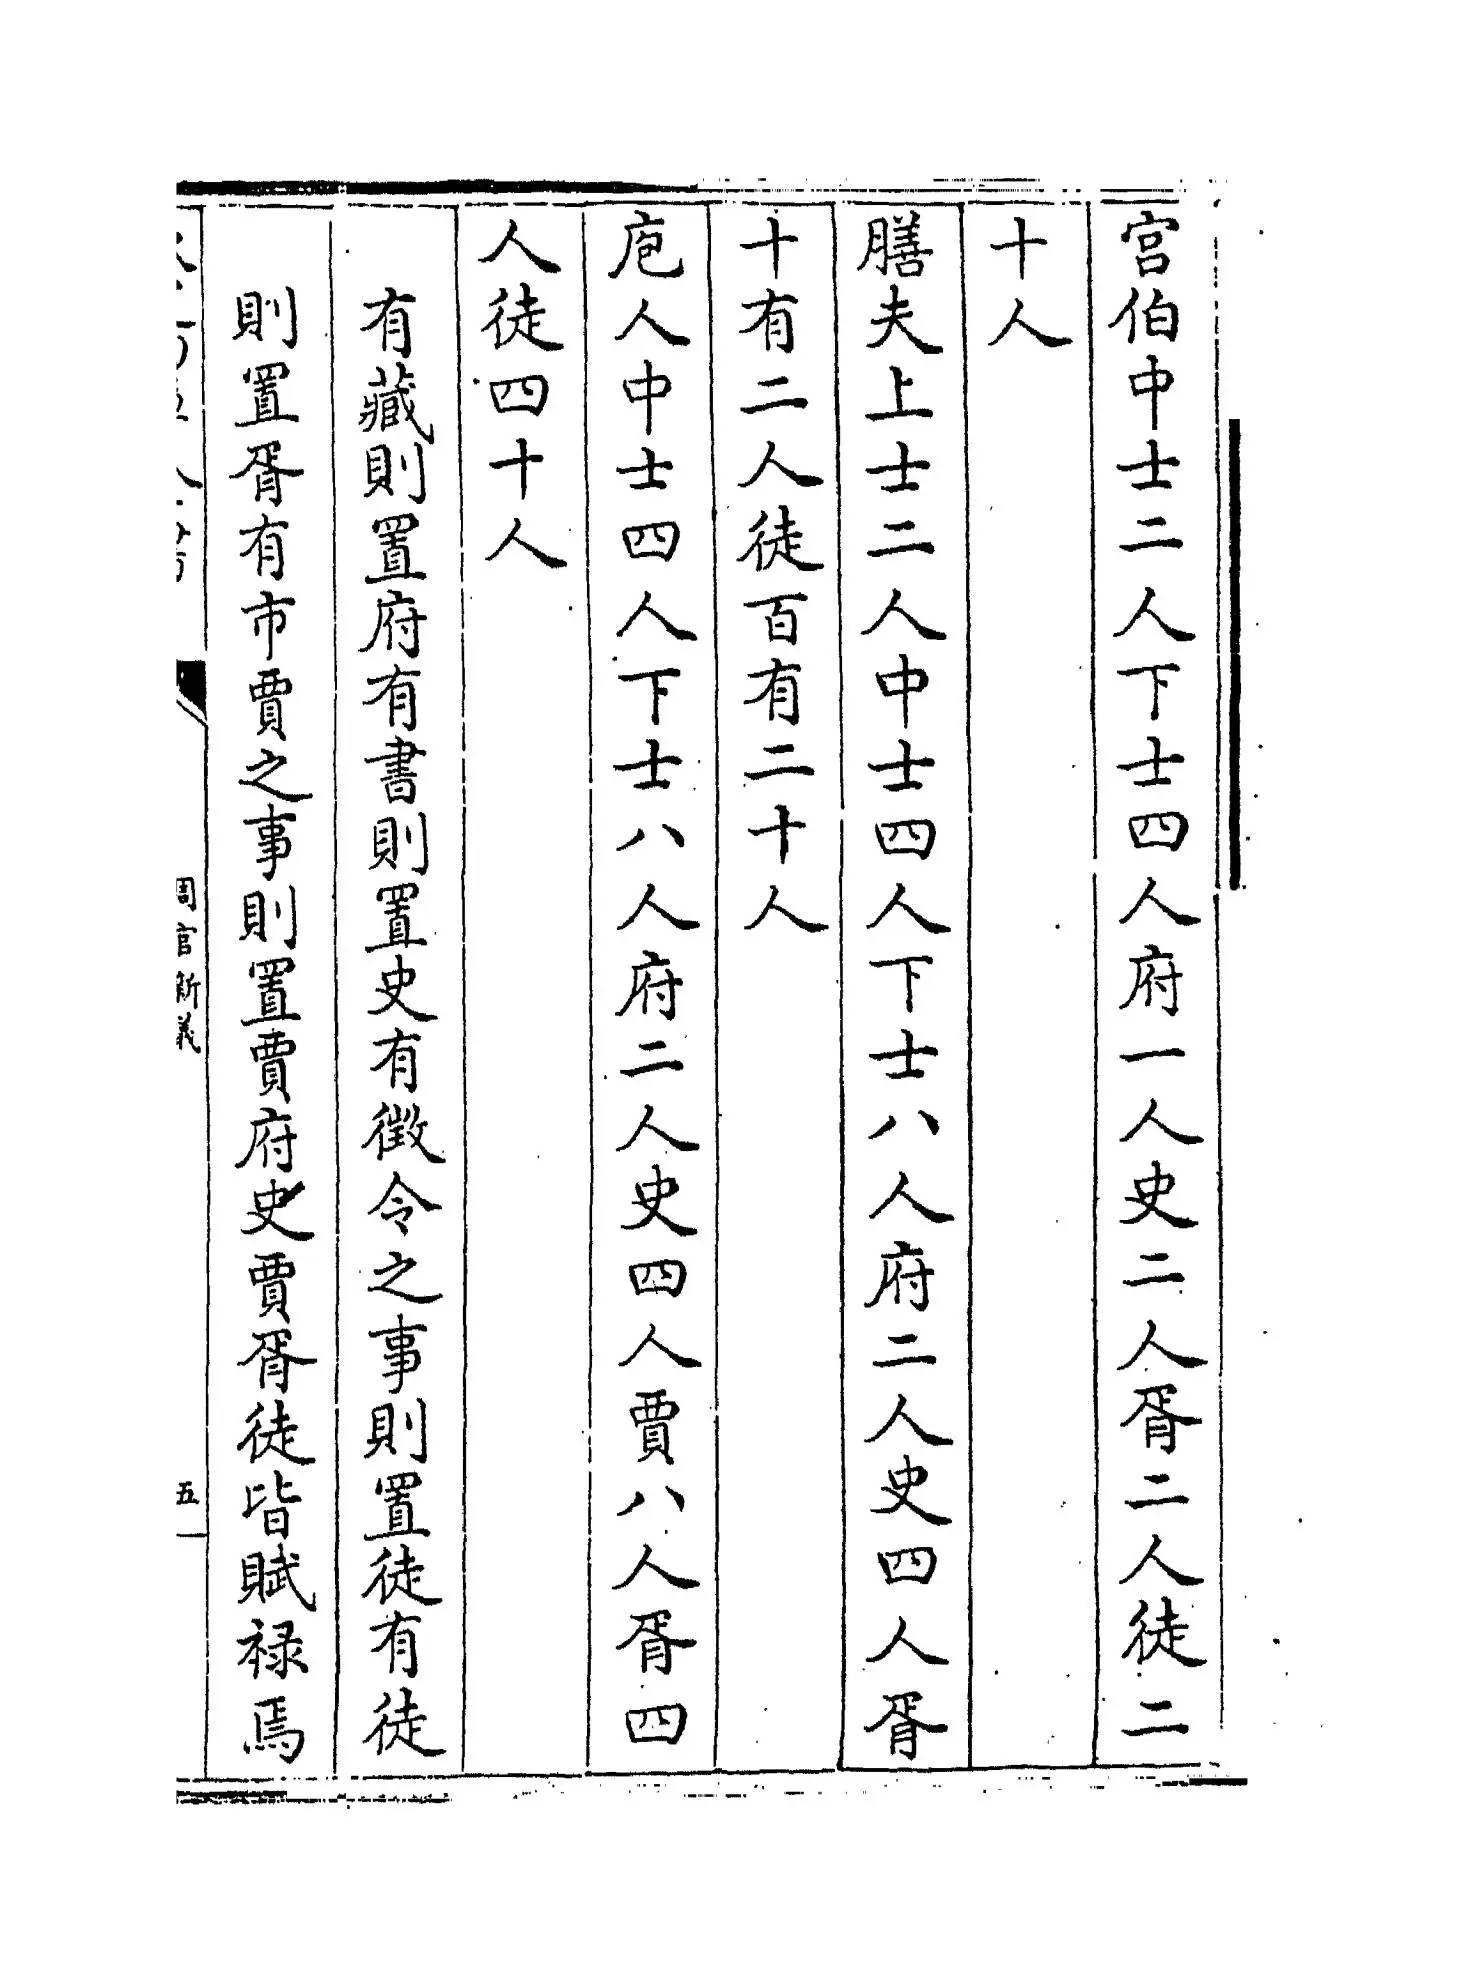 宫伯中士二人下士四人府一人史二人胥二人徒二
十人
膳夫上士二人中士四人下士八人府二人史四人胥
十有二人徒百有二十人
庖人中士四人下士八人府二人史四人賈八人胥四
人徒四十人
有藏則置府有書則置史有徵令之事則置徒有徒
則置胥有市賈之事則置賈府史賈胥徒皆賦禄焉
周官新義
五